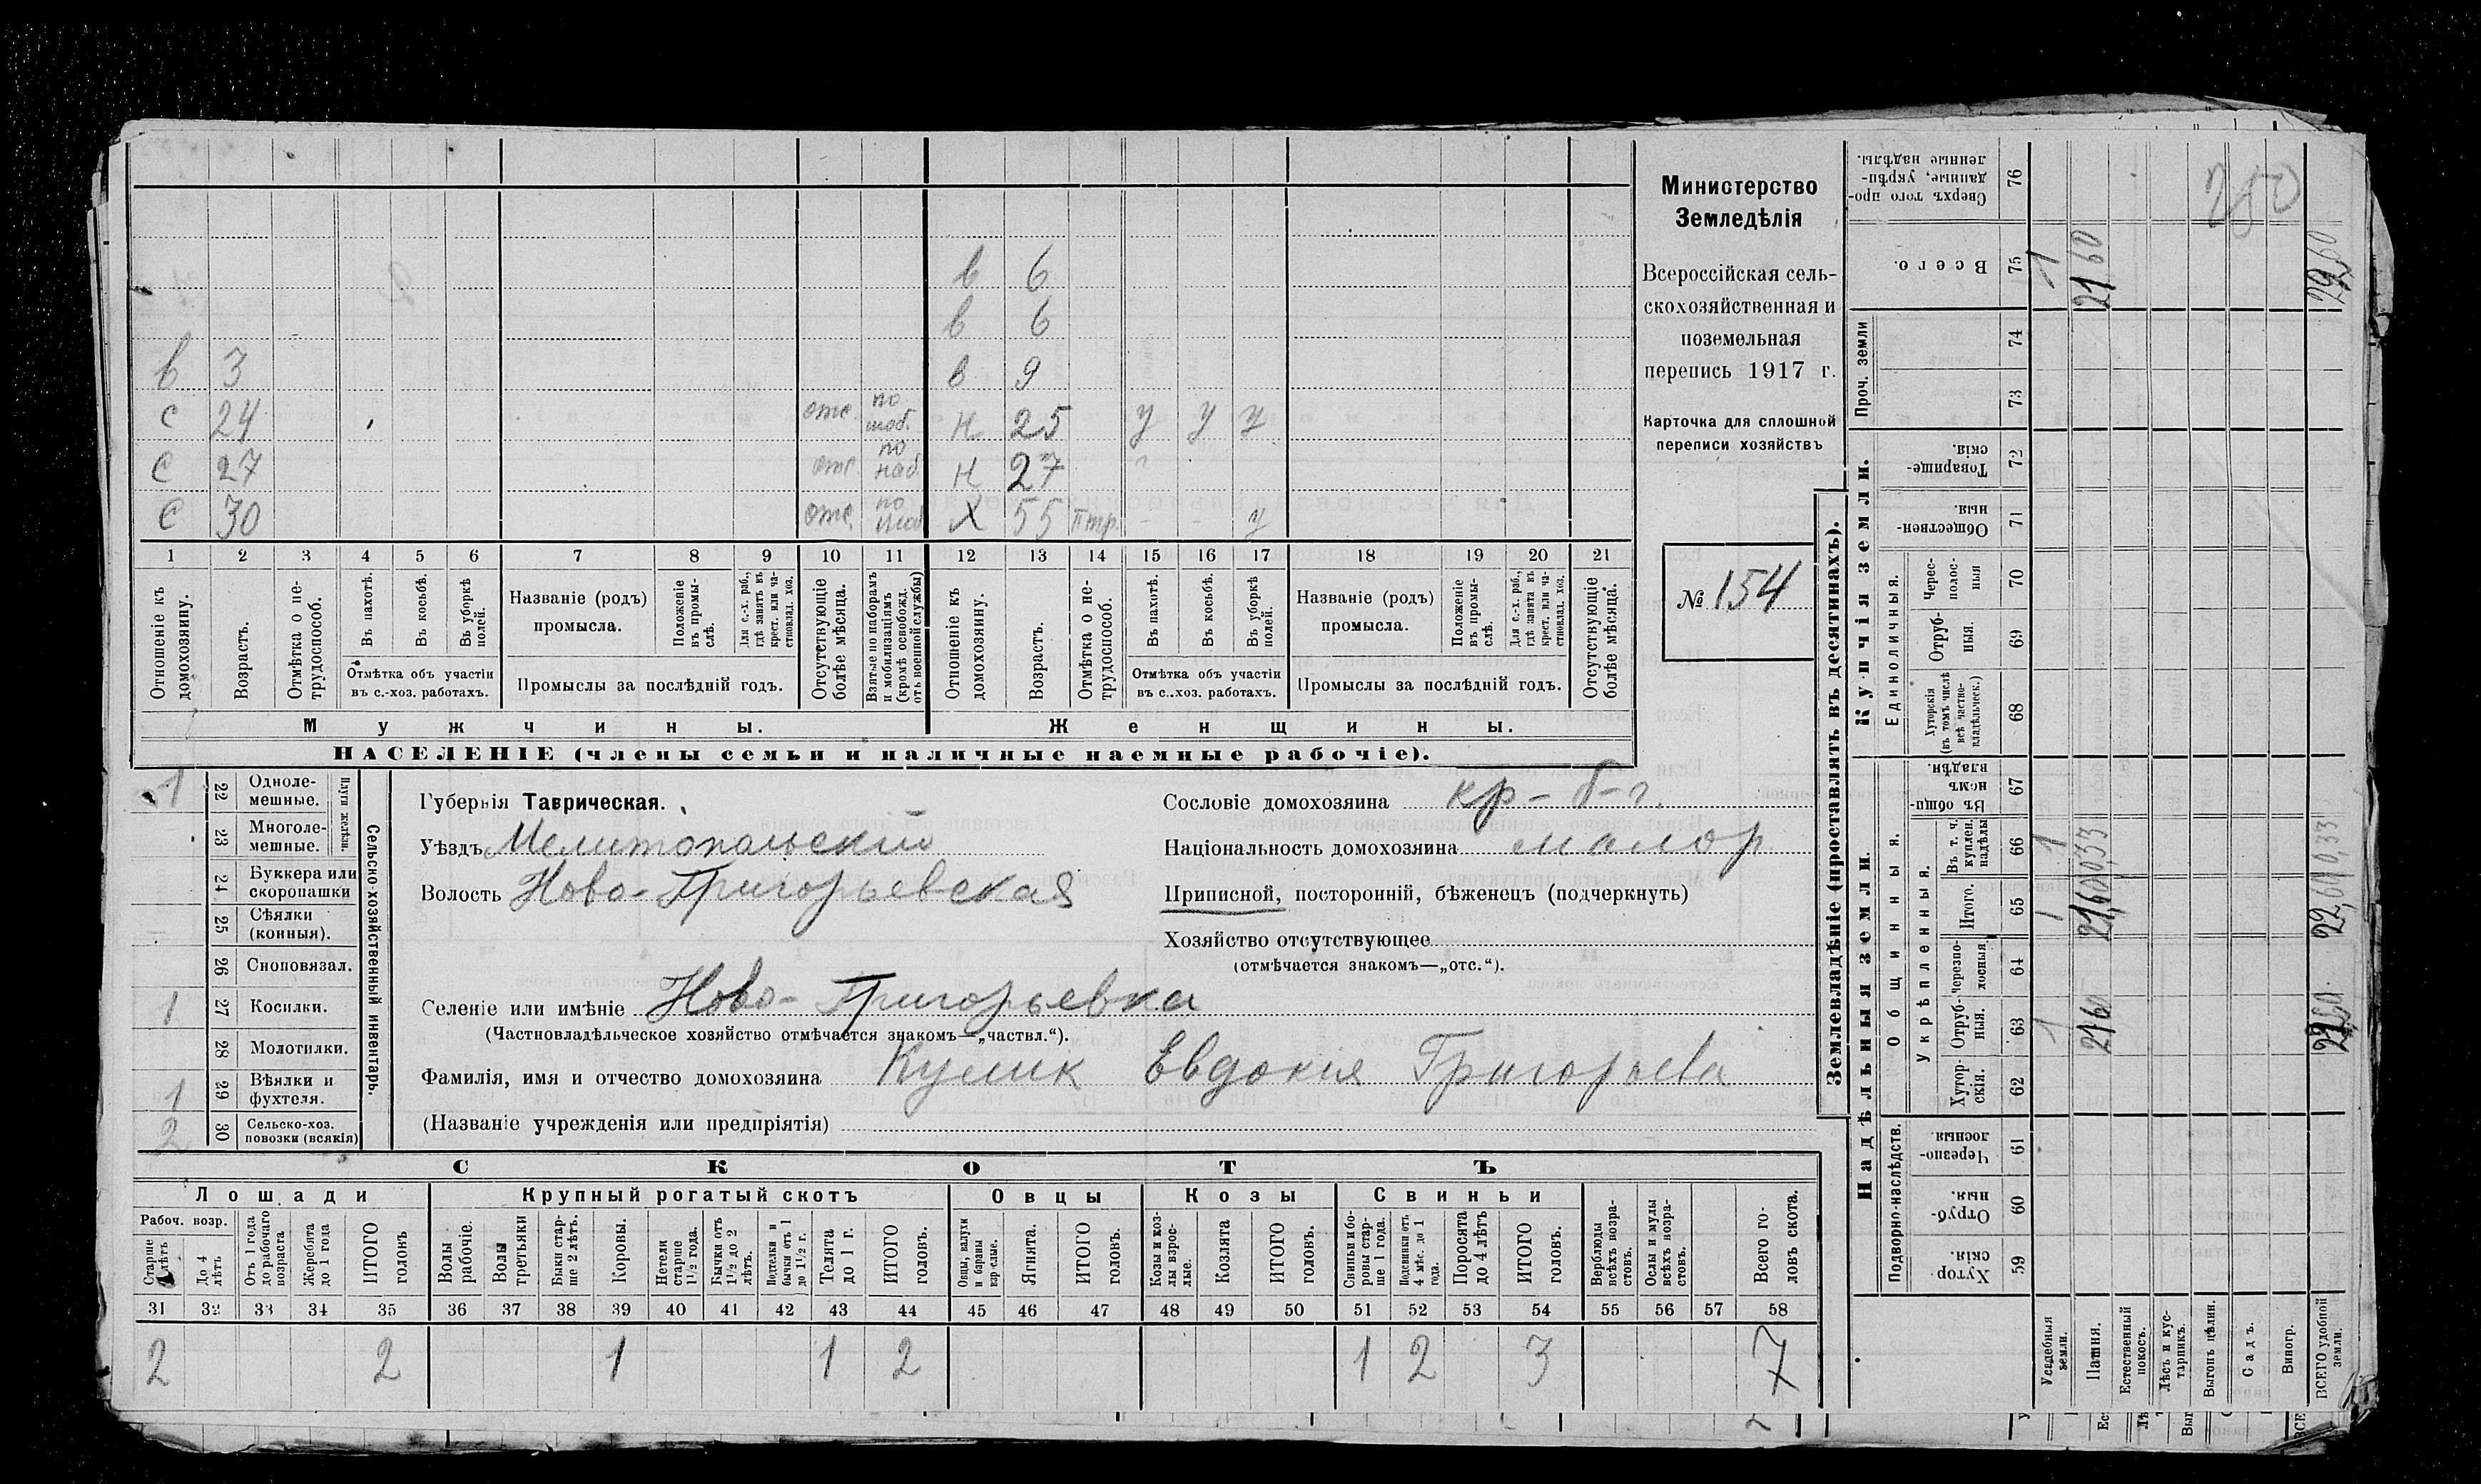 в 6
в 6
в 3 в 9
с 24 отс. по моб. н 25 у у у
с 27 отс. по моб. н 27
с 30 отс. по моб. Х 55 - - у
1 2 3 4 5 6 7 8 9 10 11 12 13 14 15 16 17 18 19 20 21
Отношеніе къ домохозяину.
Возрастъ.
Отмѣтка о не-трудоспособ.
Въ пахотѣ.
Въ косьбѣ.
Въ уборкѣ полей.
Отмѣтка объ участіи
въ с.-хоз. работахъ.
Названіе (родъ)
промысла.
Положеніе въ промы-слѣ.
Для с.-х. раб., гдѣ занятъ въ крест. или ча-стновлад. хоз.
Промыслы за послѣдній годъ.
Отсутствующіе болѣе мѣсяца.
Взятые по наборамъ и мобилизаціямъ (кромѣ освобожд. отъ военной службы)
Отношеніе къ домохозяину.
Возрастъ.
Отмѣтка о не-трудоспособ.
Въ пахотѣ.
Въ косьбѣ.
Въ уборкѣ полей.
Отмѣтка объ участіи
въ с.-хоз. работахъ.
Названіе (родъ)
промысла.
Положеніе въ промы-слѣ.
Для с.-х. раб., гдѣ занята въ крест. или ча-стновлад. хоз.
Промыслы за послѣдній годъ.
Отсутствующіе болѣе мѣсяца.
Мужчины. Женщины.
НАСЕЛЕНІЕ (члены семьи и наличные наемные рабочіе).
Министерство
Земледѣлія
Всероссійская сель-
скохозяйственная и
поземельная
перепись 1917 г.
Карточка для сплошной
переписи хозяйствъ
№ 154
1 22 Одноле-мешные.
23 Многоле-мешные.
Плуги желѣзн.
24 Буккера или скоропашки
25 Сѣялки (конныя).
26 Сноповязал.
1 27 Косилки.
28 Молотилки.
1 29 Вѣялки и фухтеля.
2 30 Сельско-хоз. повозки (всякія)
Сельско-хозяйственный инвентарь.
Губернія Таврическая.
Уѣздъ Мелитопольский
Волость Ново-Григорьевская
Селеніе или имѣніе Ново-Григорьевка
(Частновладѣльческое хозяйство отмѣчается знакомъ—„частвл.“).
Фамилія, имя и отчество домохозяина Кулик Евдокия Григорьева
(Названіе учрежденія или предпріятія)
Сословіе домохозяина кр-
Національность домохозяина малор
Приписной, посторонній, бѣженецъ (подчеркнуть)
Хозяйство отсутствующее
(отмѣчается знакомъ—„отс.“).
СКОТЪ
Лошади Крупный рогатый скотъ Овцы Козы Свиньи
Рабоч. возр.
Старше 4 лѣтъ
До 4 лѣтъ
Отъ 1 года до рабочаго возраста
Жеребята до 1 года
ИТОГО головъ
Волы рабочіе.
Волы третьяки
Быки стар-ше 2 лѣтъ.
Коровы.
Нетели старше 1½ года.
Бычки отъ 1½ до 2 лѣтъ.
Подтелки и бычки отъ 1 до 1½ г.
Телята до 1 г.
ИТОГО головъ.
Овцы, валухи и бараны взрослые.
Ягнята.
ИТОГО головъ.
Козы и коз-лы взрос-лые.
Козлята
ИТОГО головъ.
Свиньи и бо-ровы стар-ше 1 года.
Подсвинки отъ 4 мѣс. до 1 года.
Поросята до 4 лѣтъ
ИТОГО головъ.
Верблюды всѣхъ возра-стовъ.
Ослы и мулы всѣхъ возра-стовъ.
Всего го-ловъ скота.
31 32 33 34 35 36 37 38 39 40 41 42 43 44 45 46 47 48 49 50 51 52 53 54 55 56 57 58
2 2 1 1 2 1 2 3 7
Землевладѣніе (проставлять въ десятинахъ).
Надѣльныя земли. Купчія земли. Проч. земли
Подворно-наслѣдств.
Общинныя.
Укрѣпленныя.
Единоличныя.
Сверхъ того про-данные, укрѣп-ленные надѣлы. 76 250
Всего. 75 1 21 60
74
73
Товарище-скія. 72
Обществен-ныя. 71
Черес-полос-ныя 70
Отруб-ныя. 69
Хуторскія (въ томъ числѣ всѣ частно-владѣльческ.) 68
Въ общи-номъ владѣн. 67
Въ т. ч. куплен. надѣлы 66 1 0,33 0,33
Итого. 65 1 21,60 22,60
Черезпо-лосныя. 64
Отруб-ныя. 63 1 21 60
Хутор-скія. 62
Черезпо-лосныя 61
Отруб-ныя. 60
Хутор-скія. 59
Усадебныя земли.
Пашня.
Естественный покосъ.
Лѣсъ и кус-тарникъ.
Выгонъ цѣлин.
Садъ.
Виногр.
ВСЕГО удобной земли.